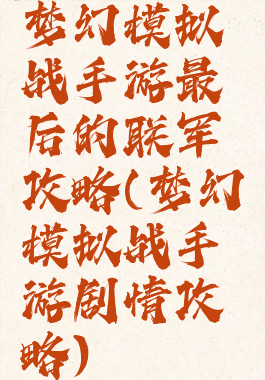 梦幻模拟
战手游最
后的联军
攻略(梦幻
模拟战手
游剧情攻
略)